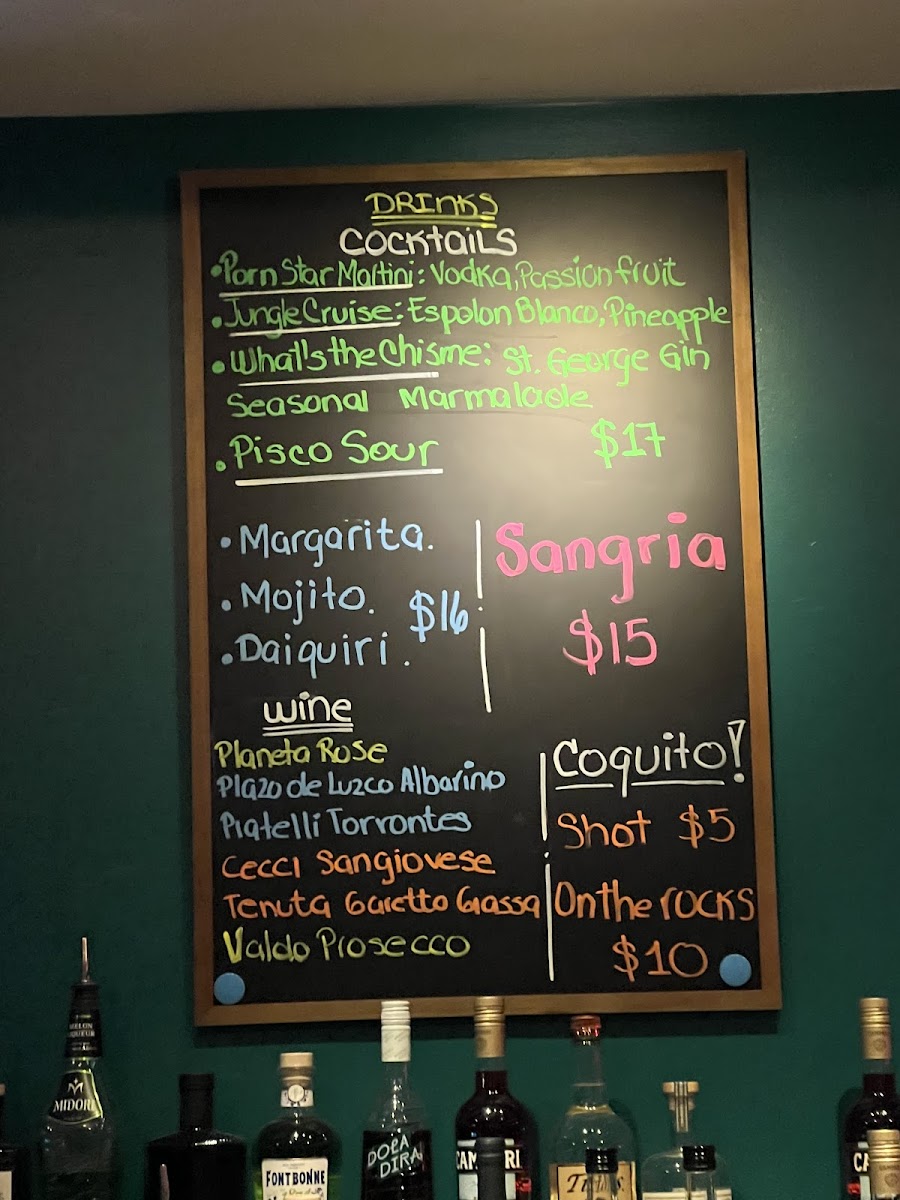 DRINKS
COCKtaiLS
•Porn Star Martini: Vodka, Passion fruit
•Jungle Cruise: Espolon Blanco, Pineapple
•What's the Chisme: St. George Gin
Seasonal Marmalade
•Pisco Sour $17
•Margarita.
•Mojito. $16
•Daiquiri.
Sangria
$15
Wine
Planeta Rose
Plazo de Luzco Albarino
Piatelli Torrontes
Cecci Sangiovese
Tenuta Garetto Grassa
Valdo Prosecco
Coquito!
Shot $5
On the rocks
$10
MIDORI
FONTBONNE